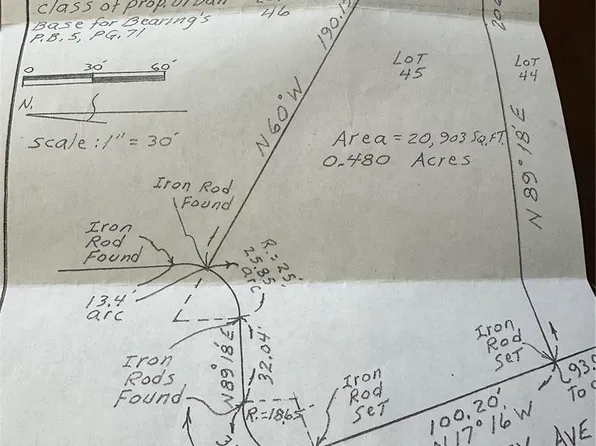 class of prop. urban
Base for Bearing's
P.B. 5, PG. 71
46
0 30' 60'
N.
scale: 1" = 30'
190.
N 60° W
LOT
45
LOT
44
N 89° 18' E
Area = 20,903 SQ. FT.
0.480 Acres
Iron Rod
Found
Iron
Rod
Found
13.4'
arc
R. = 25'
25.85'
arc
Iron
Rods
Found
N 89° 18' E
32.04'
R. = 18.65'
Iron
Rod
SET
Iron
Rod
SET
100.20'
N 17° 16' W
93.
To
AVE